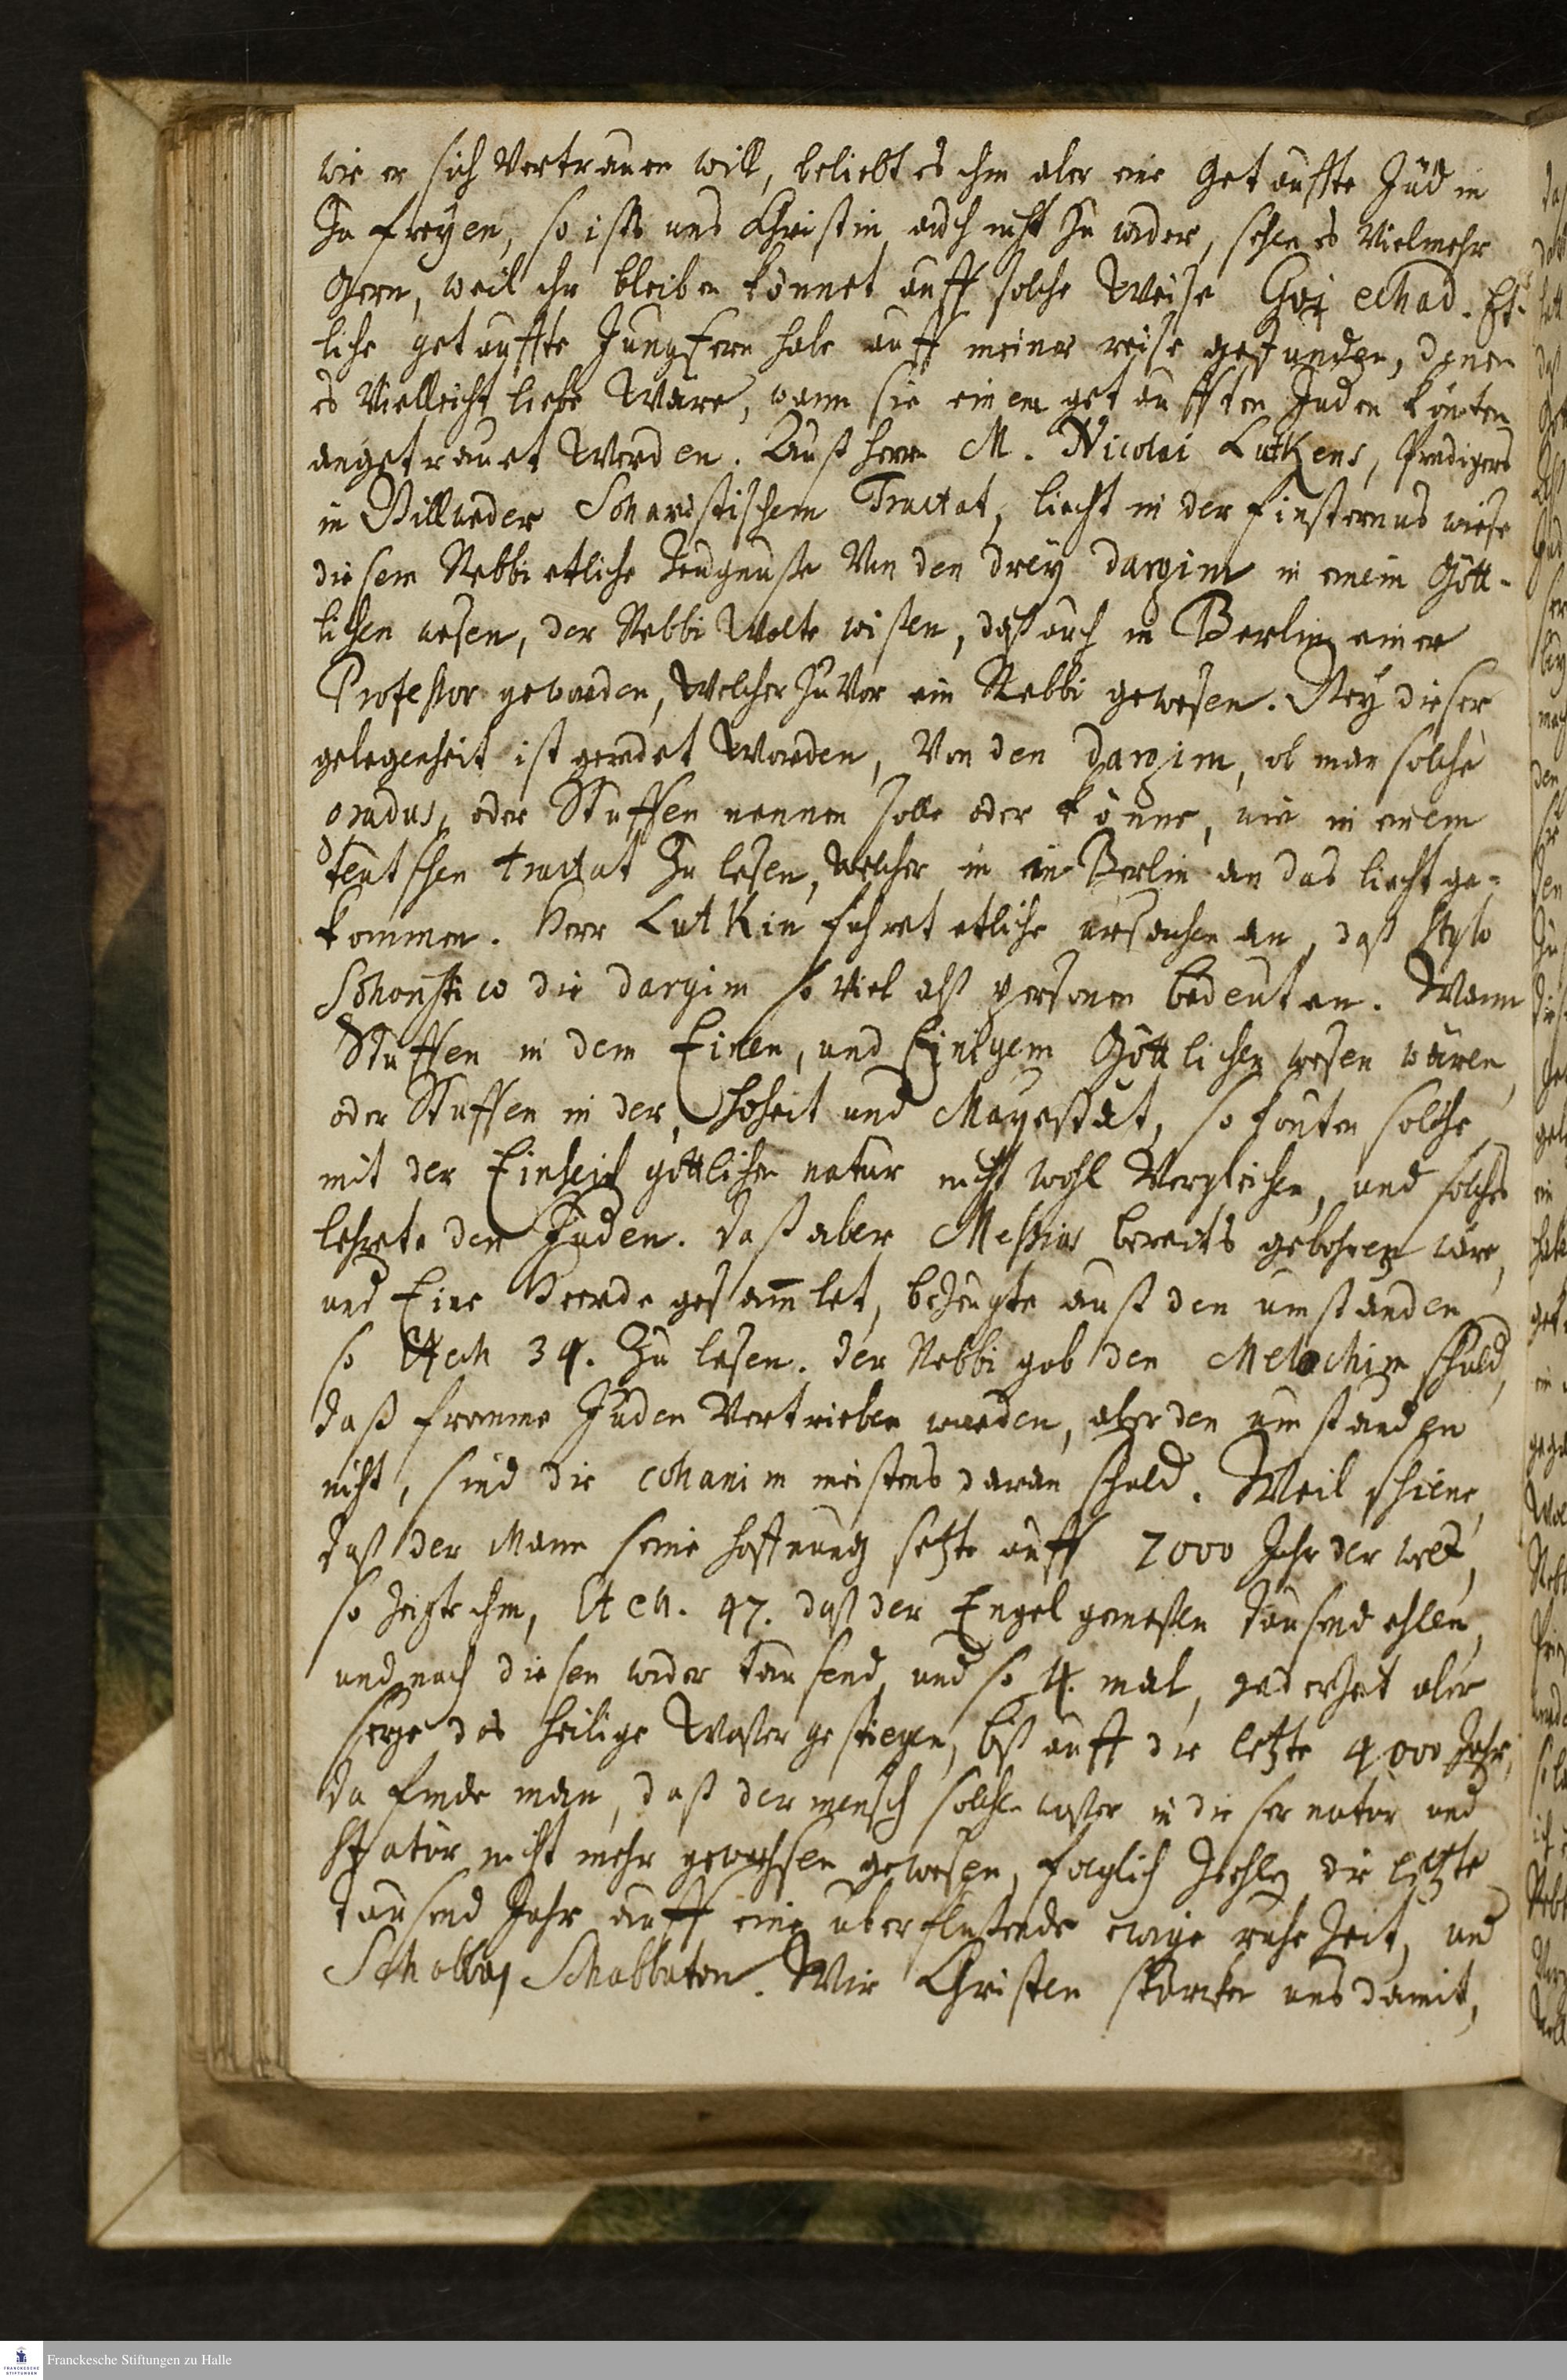 wie er sich Vertrauen will, beliebt es ihm aber eine Getauffte Jüdin
Zu freyen, so ists uns Christen auch nicht Zu wider, sehen es Vielmehr
Gern, weil ihr bleiben könnet auff solche Weise Goj echad. Et-
liche getauffte Jungfern habe auff meiner reise gefunden, denen
es Vielleicht liebe Wäre, wann sie einem getaufften Juden könten
angetrauet Werden. Auß Herrn M. Nicolai Lutkens, Predigers
in Billwerder Soharistischem Tractat, liecht in der finsternus wiese
diesem Rebbi etliche Zeugnuße Von den drey dargim in einem Gött-
lichen wesen, der Rebbi Wolte wißen, daß auch in Berlin einer
Profeßor geworden, Welcher Zuvor ein Rebbi gewesen. Bey dieser
gelegenheit ist geredet Worden, Von den dargim, ob man solche
gradus, oder Stuffen nennen solle oder könne, wie in einem
teutschen tractat Zu lesen, Welcher in Berlin an das liecht ge-
kommen. Herr Lutkin führet etliche ursachen an, daß stylo
Soharistico die dargim so viel alß personen bedeuten. Wann
Stuffen in dem Einen, und Einigem Göttlichen wesen wären,
oder Stuffen in der Hoheit und Mayestät, so könten solche
mit der Einheit göttlicher natur nicht wohl Vergleichen, und solches
lehrete den Juden. daß aber Meßias bereits gebohren wäre,
und Eine Heerde gesammlet, bezeugte auß den umständen
so Ezech 34. Zu lesen. der Rebbi gab den Melachim schuld,
daß fromme Juden Vertrieben werden, aber den umständen
nicht, sind die cohanim meistens daran schuld. Weil schiene,
daß der Mann seine hoffnung setzte auff 7000 Jahr der welt,
so zeigte ihm, Ezech. 47. daß der Engel gemeßen tausend ehlen,
und nach diesen wider tausend, und so 4. mal, aber
seye das heilige Waßer gestiegen, biß auff die letzte 4000 Jahr,
da finde man, daß der mensch solchem waßer in dieser natur und
statur nicht mehr gewachsen gewesen, folglich die letzte
tausend Jahr auff eine uberflüßende ewige ruhe Zeit, und
Schabbas Schabbaton. Wir Christen stärcken uns damit,
Franckesche Stiftungen zu Halle